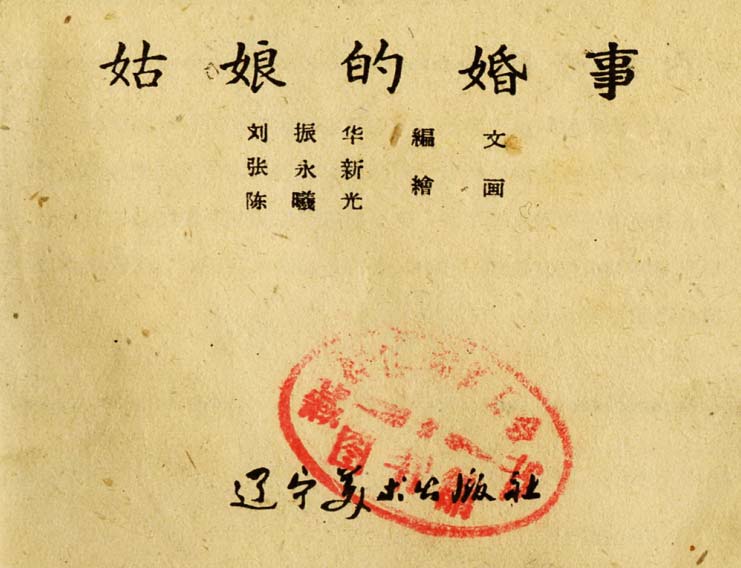 姑娘的婚事
刘振华 編文
张永新
陈曦光 繪画
辽宁美术出版社